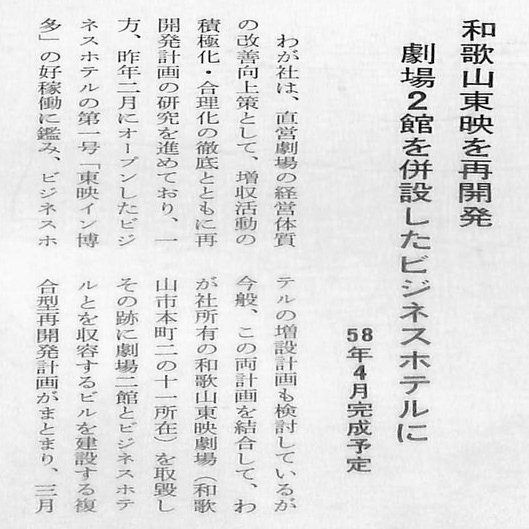 和歌山東映を再開発
劇場2館を併設したビジネスホテルに
58年4月完成予定
わが社は、直営劇場の経営体質
の改善向上策として、増収活動の
積極化・合理化の徹底とともに再
開発計画の研究を進めており、一
方、昨年二月にオープンしたビジ
ネスホテルの第一号「東映イン博
多」の好稼働に鑑み、ビジネスホ
テルの増設計画も検討しているが
今般、この両計画を結合して、わ
が社所有の和歌山東映劇場（和歌
山市本町二の十一所在）を取毀し
その跡に劇場二館とビジネスホテ
ルとを収容するビルを建設する複
合型再開発計画がまとまり、三月